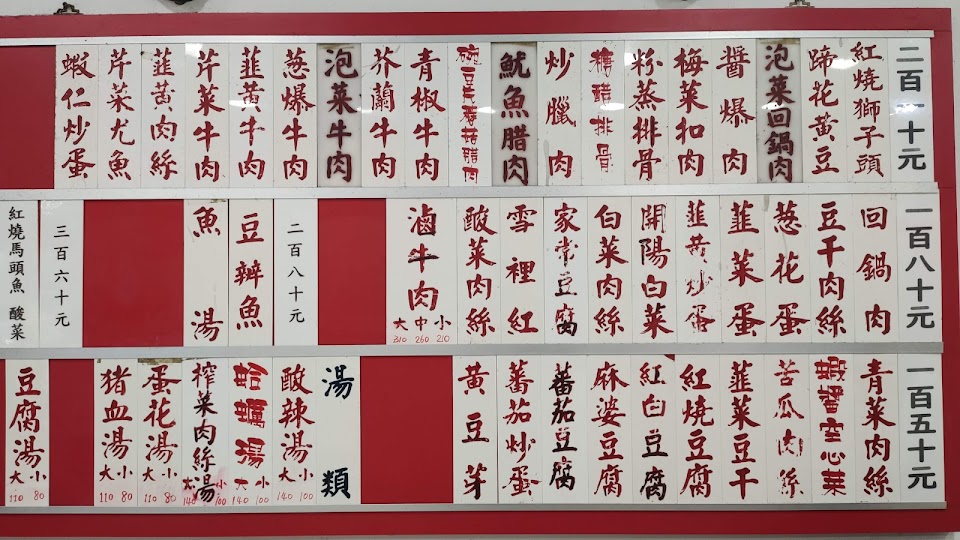 二百一十元
紅燒獅子頭
蹄花黃豆
泡菜回鍋肉
醬爆肉
梅菜扣肉
粉蒸排骨
糖醋排骨
炒臘肉
魷魚腊肉
青椒牛肉
芥蘭牛肉
泡菜牛肉
葱爆牛肉
韮黃牛肉
芹菜牛肉
韮黃肉絲
芹菜尤魚
蝦仁炒蛋
一百八十元
回鍋肉
豆干肉絲
葱花蛋
韮菜蛋
韮黃炒蛋
開陽白菜
白菜肉絲
家常豆腐
雪裡紅
酸菜肉絲
滷牛肉
大 中 小
310 260 210
二百八十元
豆瓣魚
魚湯
三百六十元
紅燒馬頭魚 酸菜
一百五十元
青菜肉絲
蝦醬空心菜
苦瓜肉絲
韮菜豆干
紅燒豆腐
紅白豆腐
麻婆豆腐
蕃茄豆腐
蕃茄炒蛋
黃豆芽
湯類
酸辣湯
大 小
140 100
蛤蠣湯
大 小
140 100
榨菜肉絲湯
大 小
140 100
蛋花湯
大 小
110 80
猪血湯
大 小
110 80
豆腐湯
大 小
110 80